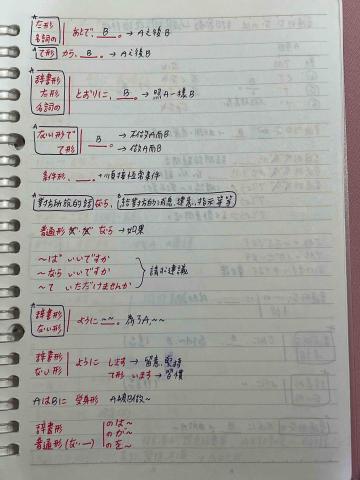 A た形
名詞の あとで、 B 。 → A之後B
A て形 から、 B 。 → A之後B
A 辞書形
た形 とおりに、 B 。 → 照A一樣B
名詞の
A ない形で B 。 → 不做A而B
て形 → 做A而B
条件形、 。 +順接恒常条件
なら、
普通形 なら → 如果
〜ば いいですか
〜なら いいですか 請求建議
〜て いただけませんか
A 辞書形
ない形 ように 〜〜。 為了A,〜〜
辞書形 ように します → 留意,堅持
ない形 て形 います → 習慣
AはBに 受身形 A被B做〜
辞書形 のは〜
普通形 のが〜
のを〜